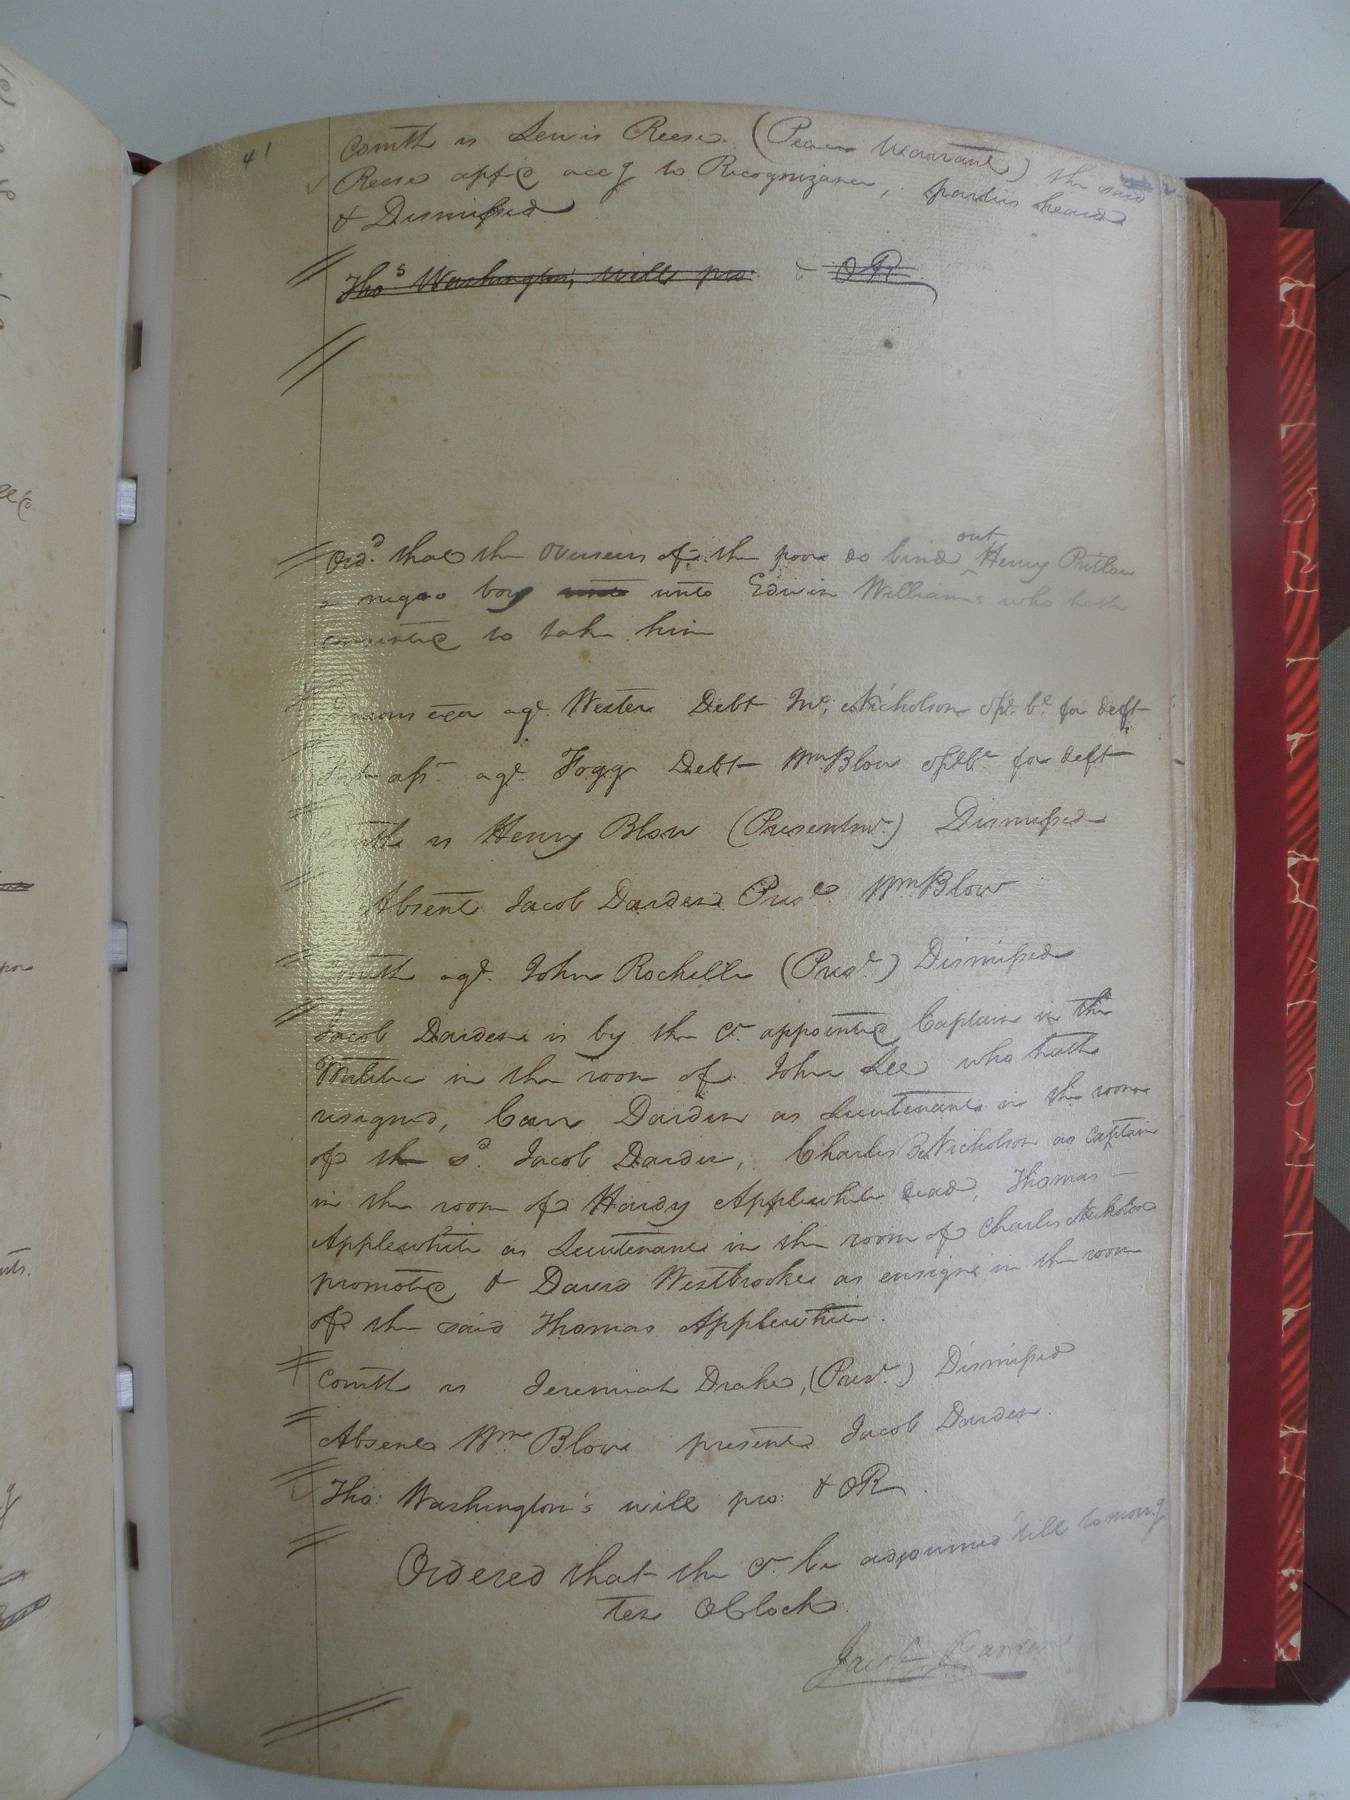 41
Comth vs Lewis Reese (Peace Warrant) the said
Reese appd accg to Recognizance, parties heard
& Dismissed
Thos Washington, will pro: & OR
out
Ordd. that the Overseers of the poor do bind Henry
a negro boy unto Edwin Williams who hath
consented to take him
exor agt. Wester Debt Jno. Nicholson Spl. bl. for deft
ass. agt. Fogg Debt Wm Blow Spl bl for deft
Comth vs Henry Blow (Presentmt.) Dismissed
Absent Jacob Darden Prest. Wm. Blow
Comth agt. John Rochelle (Prest.) Dismissed
Jacob Darden is by the Ct. appointed Captain in the
Militia in the room of John Lee who hath
resigned, Carr Darden as Lieutenant in the room
of the sd. Jacob Darden, Charles Nicholson as Captain
in the room of Hardy Applewhite dead, Thomas
Applewhite as Lieutenant in the room of Charles Nicholson
promoted & David Westbrooke as ensign in the room
of the said Thomas Applewhite.
Comth vs Jeremiah Drake, (Prest.) Dismissed
Absent Wm. Blow present Jacob Darden.
Tho: Washington's will pro: & OR.
Ordered that the Ct. be adjourned till tomorrg
ten OClock.
Jacob Darden